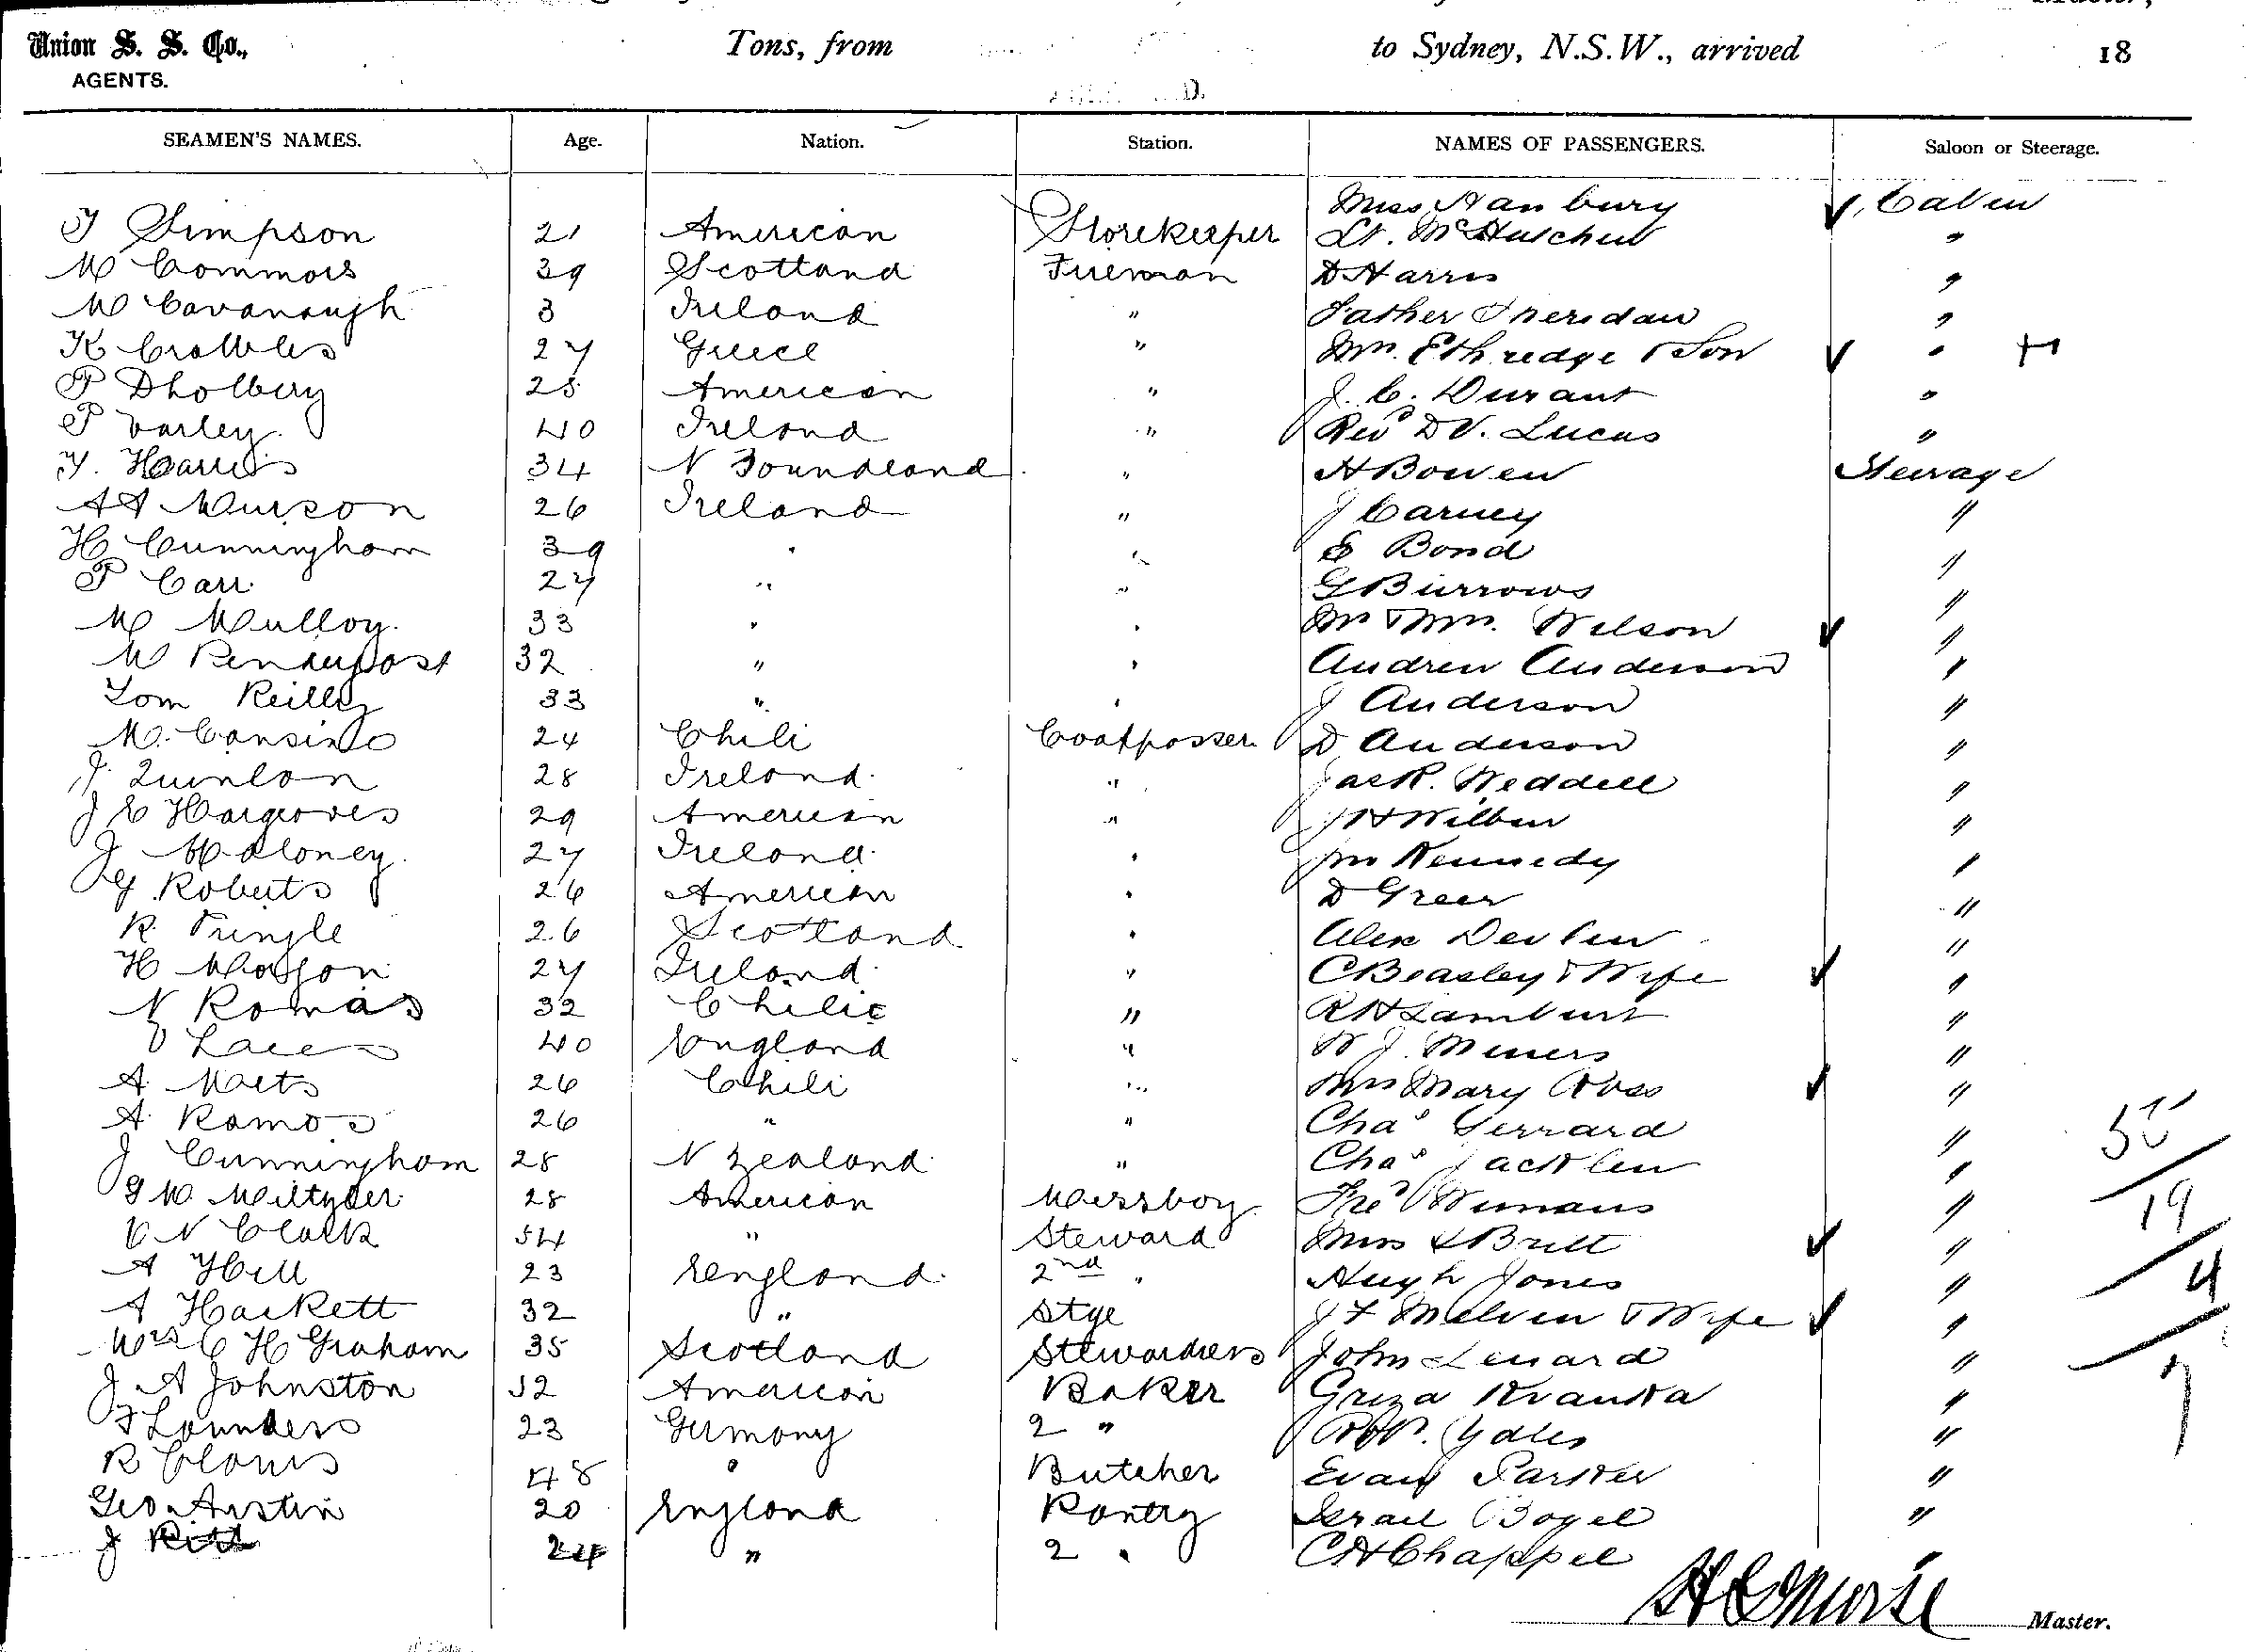 Union S. S. Co.,
AGENTS.
Tons, from to Sydney, N.S.W., arrived 18
SEAMEN'S NAMES. Age. Nation. Station. NAMES OF PASSENGERS. Saloon or Steerage.
Miss Hanbury Cabin
T Simpson 21 American Storekeeper Lt. McHutchen "
M Commors 39 Scotland Fireman D Harris "
M Cavanaugh 3 Ireland " Father Sheridan "
K 27 Greece " Mrs. Ethredge & Son "
P Dholbery 25 American " J. C. Durant "
P Varley. 40 Ireland " Revd D V. Lucas "
Y. Harris 34 N Foundland " H Bowen Steerage
26 Ireland " J Carney "
H Cunningham 39 " " E Bond "
P Carr 27 " " G Burrows "
M Mulloy. 33 " " Mr & Mrs. Wilson "
M Pendergost 32 " " Andrew Anderson "
Tom Reilly 33 " " J Anderson "
M. Cansino 24 Chili Coalpasser D Anderson "
J. Quinlon 28 Ireland " Jas R. Weddell "
J E Hargroves 29 American " J H Wilbur "
J Maloney. 27 Ireland " Kennedy "
G Roberts 26 American " D Greer "
R. Pringle 26 Scotland " Alex Devlin "
H Mason 27 Ireland " C Beasley & Wife "
N Romas 32 Chilie " R H Lambert "
40 England " W J. Miners "
A. Mats 26 Chili " Mrs Mary Ross "
A. Ramos 26 " " Chas Gerrard "
J Cunningham 28 N Zealand " Chas Jacklin "
G W. 28 American Messboy Fred Wimans "
V N Clark 54 " Steward Miss L Britt "
A Hill 23 England 2nd " Hugh Jones "
A Hackett 32 " Stge J F Melvin & Wife "
Mrs C H Graham 35 Scotland Stewardess John Lenard "
J A Johnston 52 American Baker Griza Kranka "
F Launders 23 Germony 2 " Yates "
R Clows 48 " Butcher Evan Parker "
Geo Austin 20 England Pantry Israel Bogel "
J 24 " 2 " C H Chappel "
55
19
4
7
H G Morse Master.